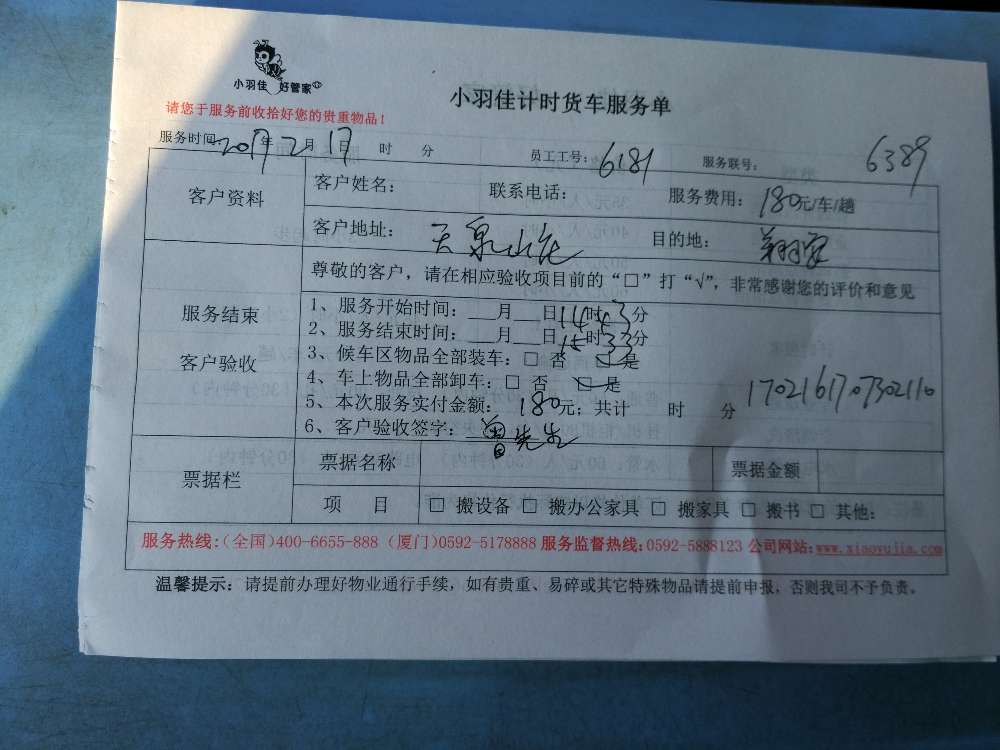 小羽佳 好管家
小羽佳计时货车服务单
请您于服务前收拾好您的贵重物品!
服务时间: 2017年2月17日 时 分 员工工号: 6181 服务联号: 6389
客户资料
客户姓名: 联系电话: 服务费用: 180元/车/趟
客户地址: 天泉山庄 目的地:
尊敬的客户，请在相应验收项目前的“□”打“√”，非常感谢您的评价和意见
服务结束
客户验收
1、服务开始时间: ___月___日14时43分
2、服务结束时间: ___月___日15时33分
3、候车区物品全部装车: □ 否 □ 是
4、车上物品全部卸车: □ 否 □ 是
5、本次服务实付金额: 180元; 共计 时 分 1702161707302110
6、客户验收签字: 曾先生
票据栏
票据名称 票据金额
项 目 □ 搬设备 □ 搬办公家具 □ 搬家具 □ 搬书 □ 其他:
服务热线:(全国)400-6655-888 (厦门)0592-5178888 服务监督热线:0592-5888123 公司网站:www.xiaoyujia.com
温馨提示: 请提前办理好物业通行手续，如有贵重、易碎或其它特殊物品请提前申报，否则我司不予负责。